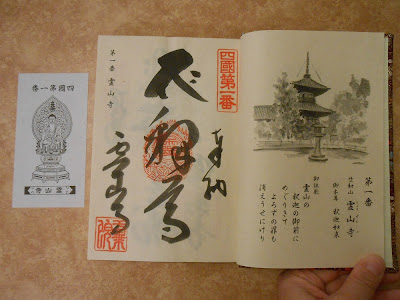 第一番
竺和山
霊山寺
御本尊 釈迦如来
御詠歌
霊山の
釈迦の御前に
めぐりきて
よろずの罪も
消えうせにけり
四國第一番
奉納
霊山寺
第一番 霊山寺
四國第一番
霊山寺